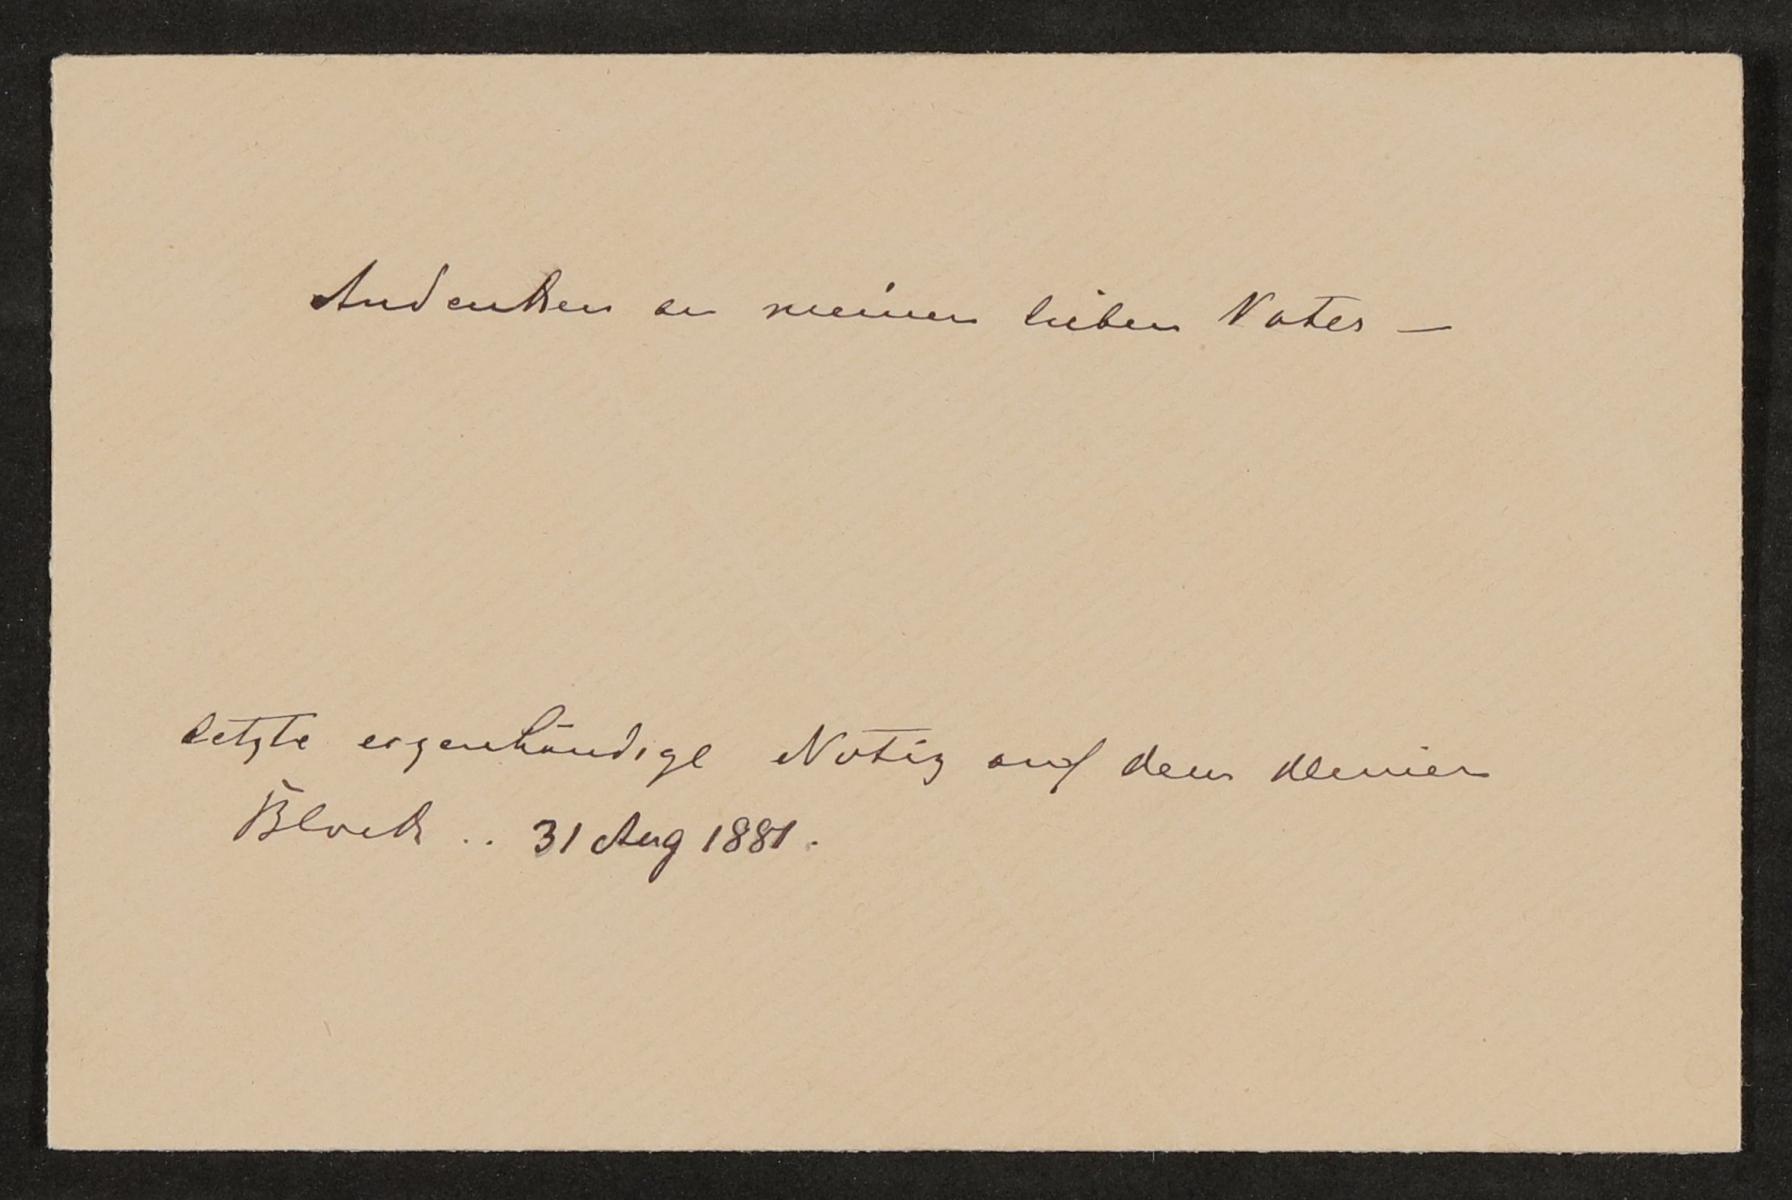 Andenken an meinen lieben Vater —
letzte eigenhändige Notiz auf dem kleinen
Block .. 31 Aug 1881.